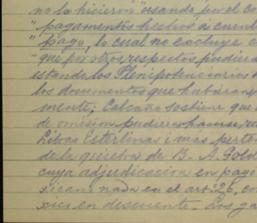 no lo hicieron cuando por el co
"pagamentos hechos á cuenta
"pago, lo cual no excluye e
que por otros respectos pudiera
estando los Plenipotenciarios
los documentos que hubieran
mente; Calcaño sostiene que
de omisión pudieran hacerse, re
Libras Esterlinas i mas perte
de la quiebra de B. A. Gold
cuya adjudicación en pago
xican nada en el art. 26, co
en descuento. Los ga